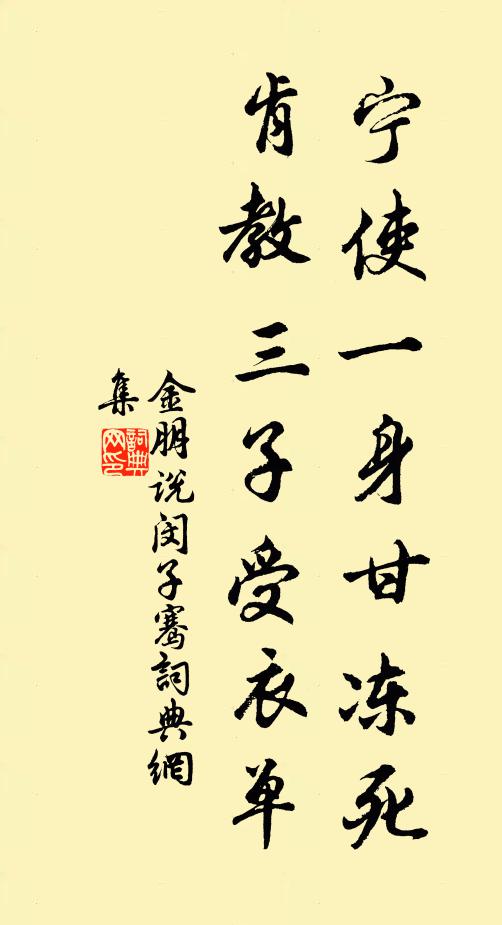 宁使一身甘冻死
肯教三子受衣单
金朋说闵子骞詞典網
集
詞典网印